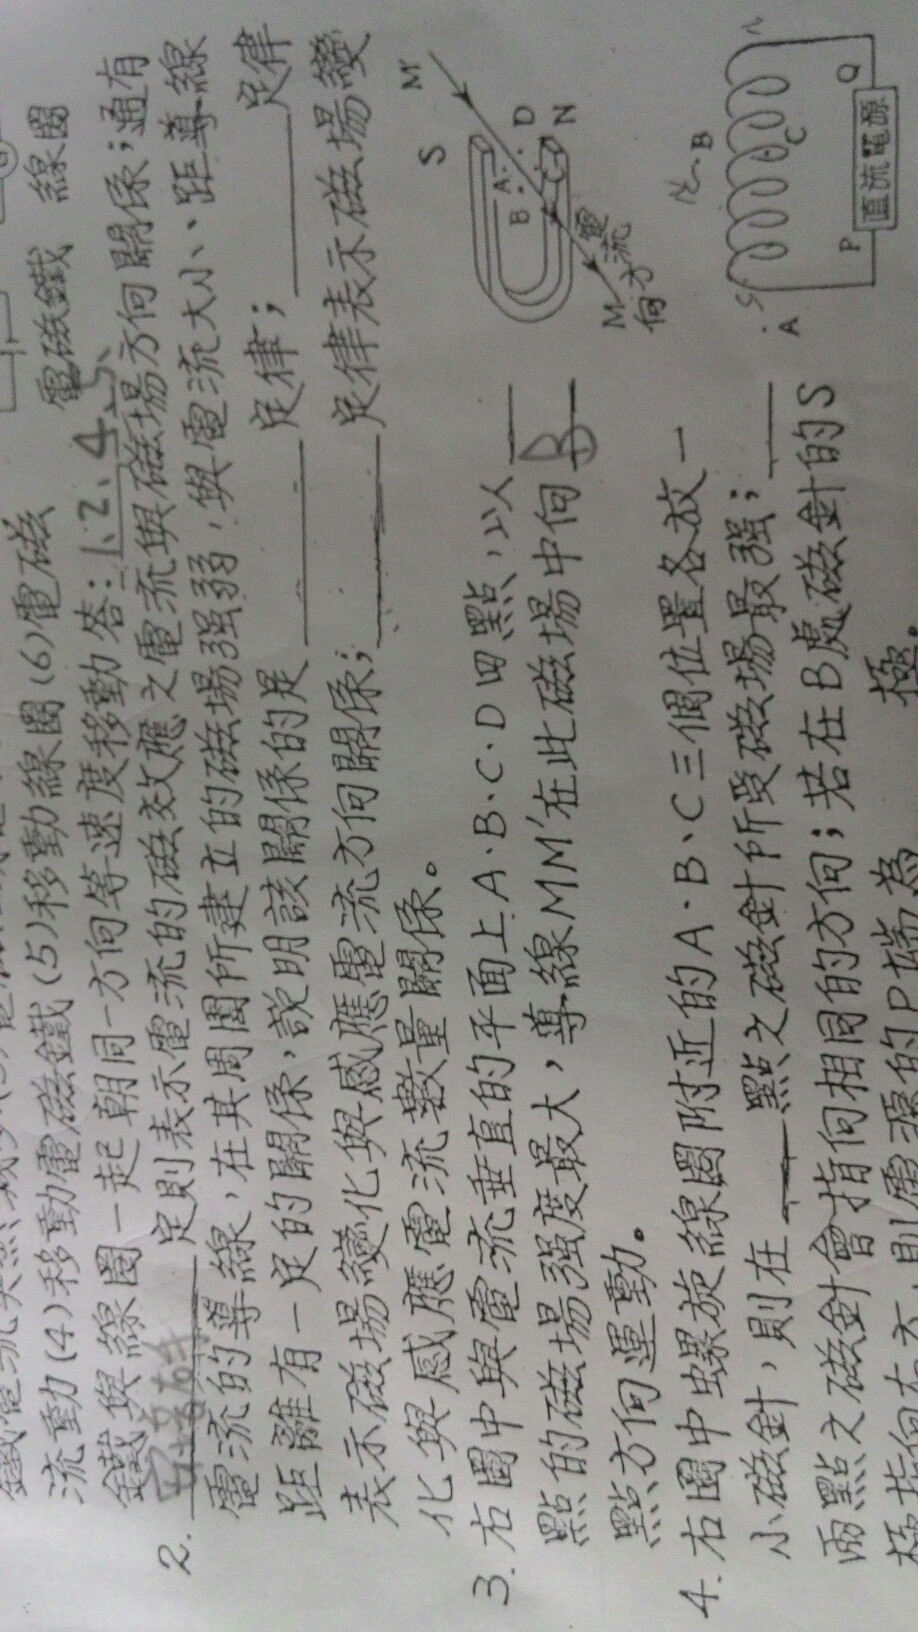 流動(4)移動電磁鐵(5)移動線圈(6)電磁
鐵與線圈一起朝同一方向等速度移動答:1、2、4、5、
電磁鐵 線圈
2. 定則表示電流的磁效應之電流與磁場方向關係;通有
電流的導線,在其周圍所建立的磁場强弱,與電流大小、距導線
距離有一定的關係,說明該關係的是 定律; 定律
表示磁場變化與感應電流方向關係; 定律表示磁場變
化與感應電流數量關係。
3. 右圖中與電流垂直的平面上A、B、C、D四點,以
點的磁場强度最大,導線MM′在此磁場中向 B
點方向運動。
S
M′
A
B
C
D
N
M
電流
方向
4. 右圖中螺旋線圈附近的A、B、C三個位置各放一
小磁針,則在 點之磁針所受磁場最强;
兩點之磁針會指向相同的方向;若在B處磁針的S
極指向左方,則電源的P端為 極。
B
S
N
A
C
P
Q
直流電源